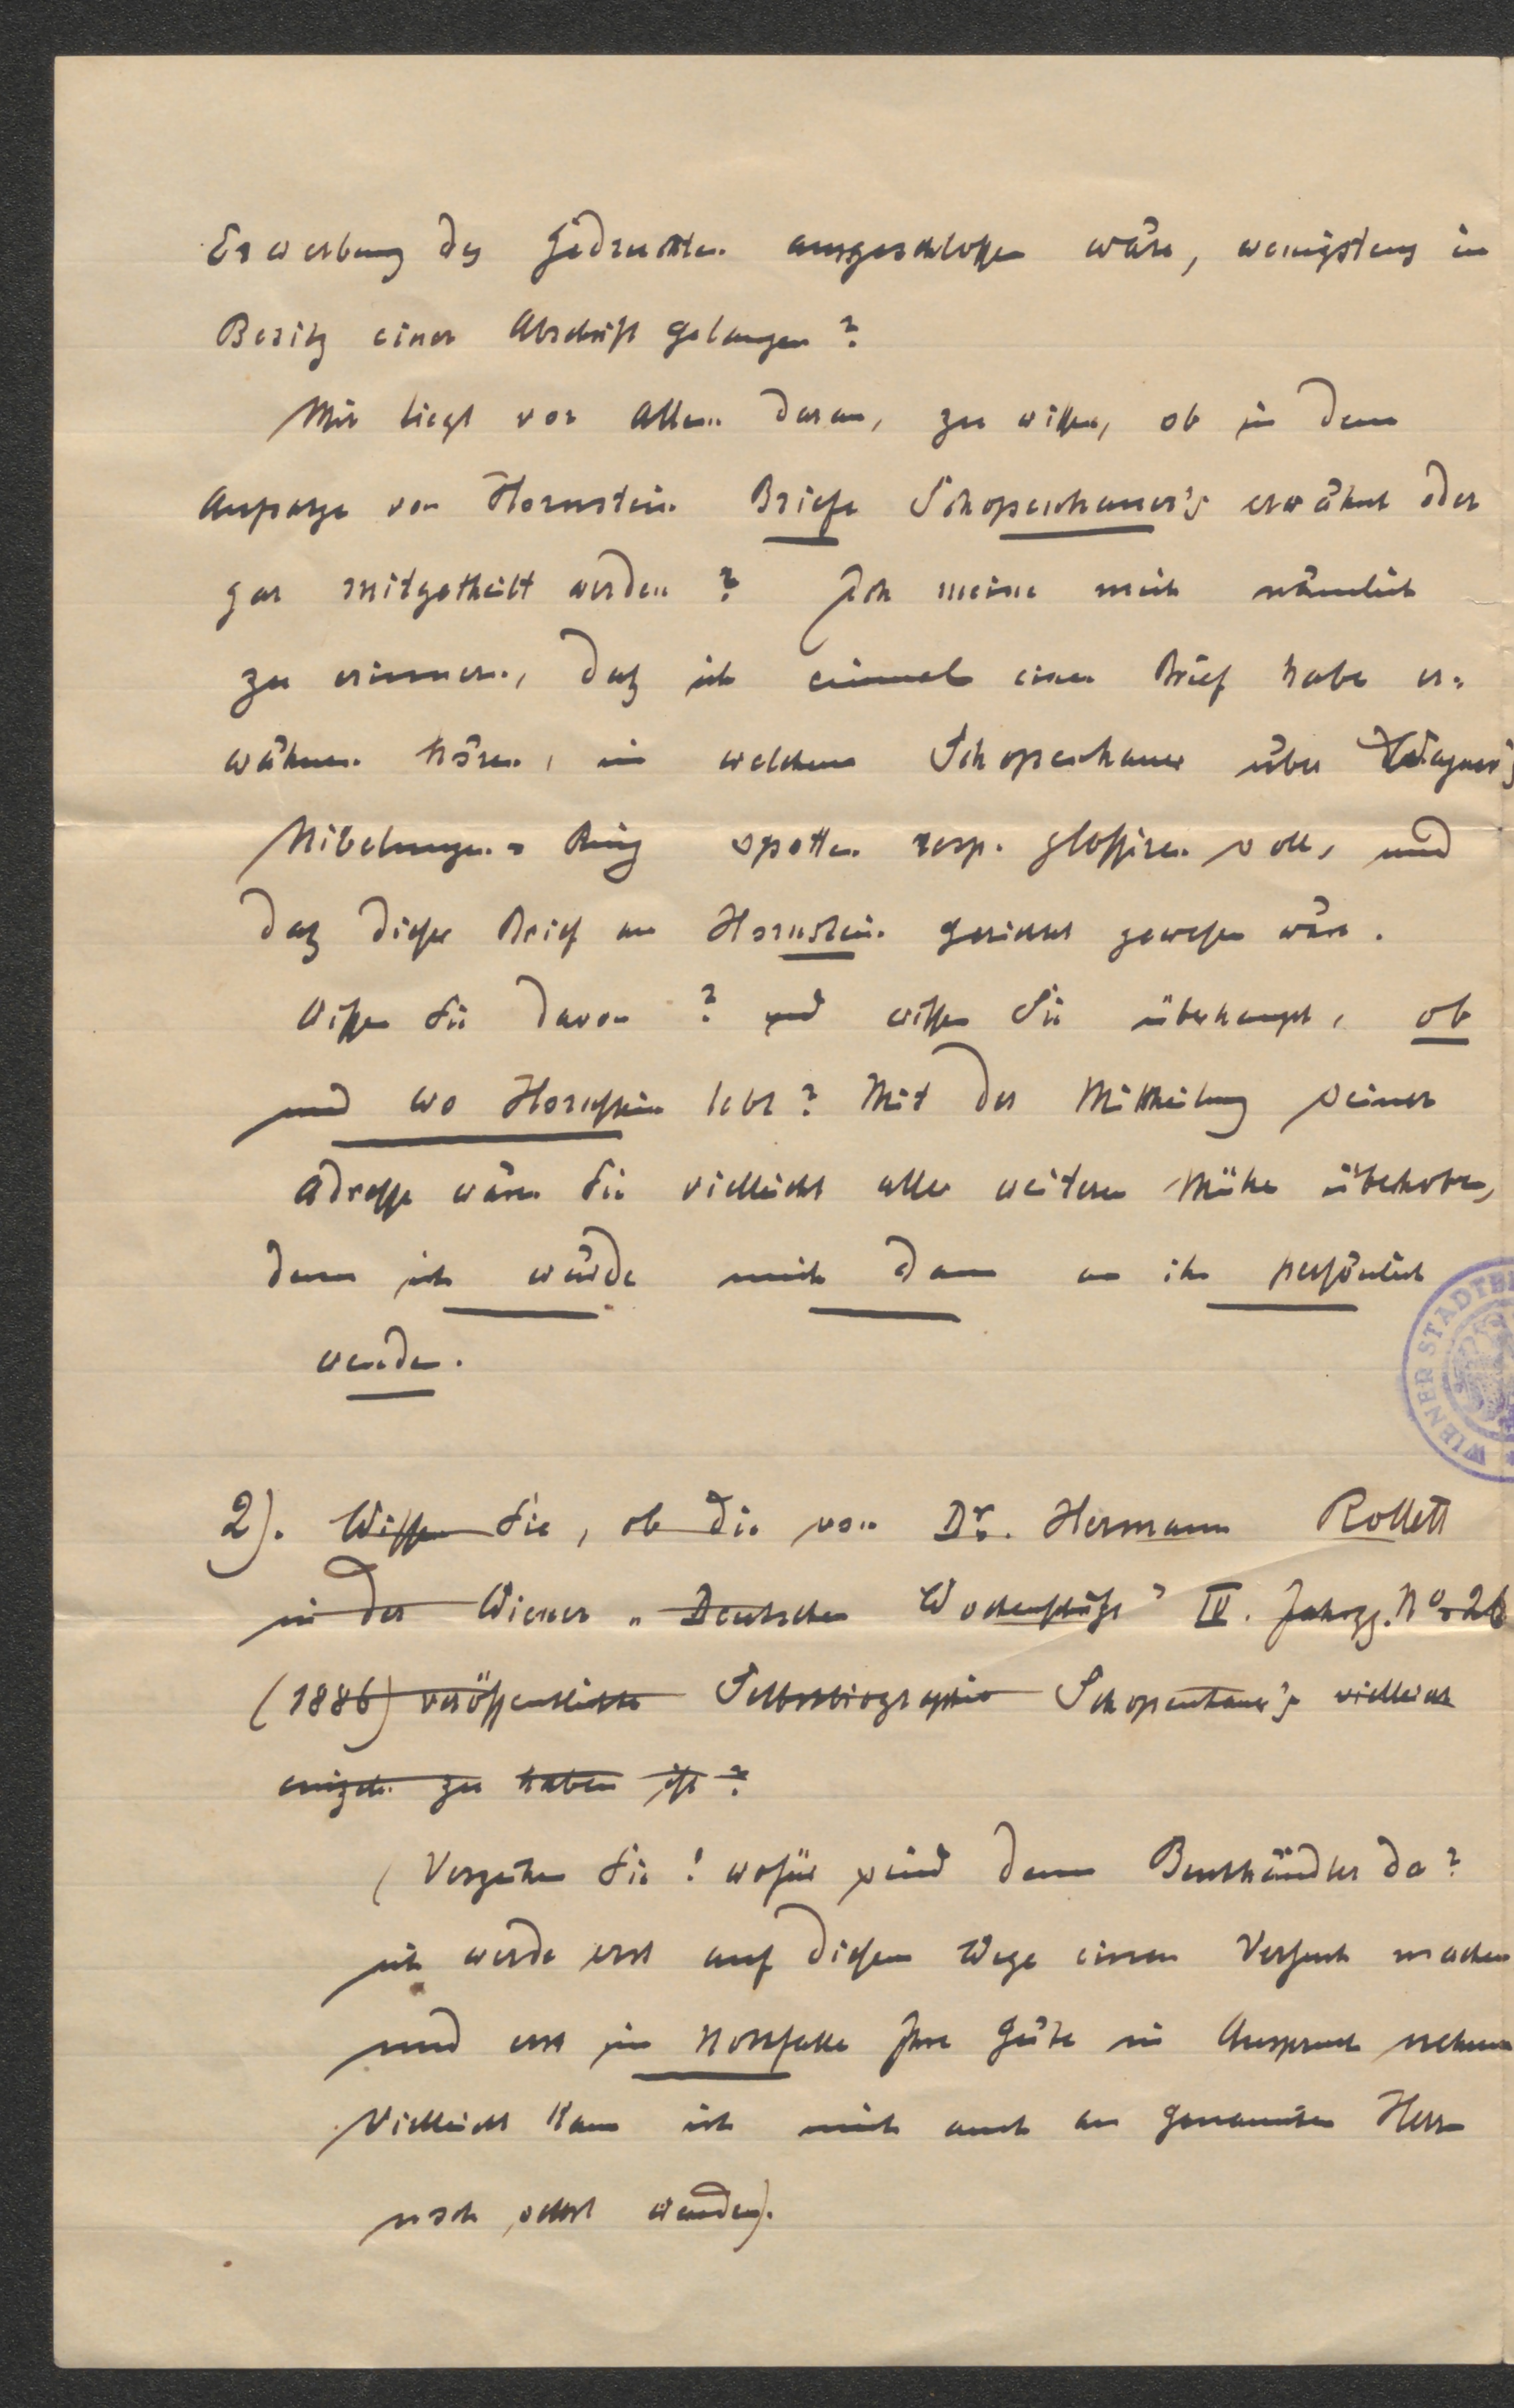 Erwerbung des Gedruckten ausgeschlossen wäre, wenigstens in
Besitz einer Abschrift gelangen?
Mir liegt vor Allem daran, zu wissen, ob in dem
Aufsatze von Hornstein Briefe Schopenhauer's erwähnt oder
gar mitgetheilt werden? Ich meine mich nämlich
zu erinnern, daß ich einmal einen Brief habe er-
wähnen hören, in welchem Schopenhauer über Wagner's
Nibelungen-Ring spotten resp. glossiren soll, und
daß dieser Brief an Hornstein gerichtet gewesen wäre.
Wissen Sie davon? und wissen Sie überhaupt, ob
und wo Hornstein lebt? Mit der Mittheilung seiner
Adresse wären Sie vielleicht aller weiteren Mühe überhoben,
denn ich würde mich dann an ihn persönlich
wenden.
2). Wissen Sie, ob die von Dr. Hermann Rollett
in der Wiener „Deutschen Wochenschrift" IV. Jahrgg. No. 26
(1886) veröffentlichte Selbstbiographie Schopenhauer's vielleicht
einzeln zu haben ist?
(Verzeihen Sie! wofür sind denn Buchhändler da?
ich werde erst auf diesem Wege einen Versuch machen
und erst im Nothfalle Ihre Güte in Anspruch nehmen
Vielleicht kann ich mich auch an genannten Herrn
noch selbst wenden).
WIENER STADTB